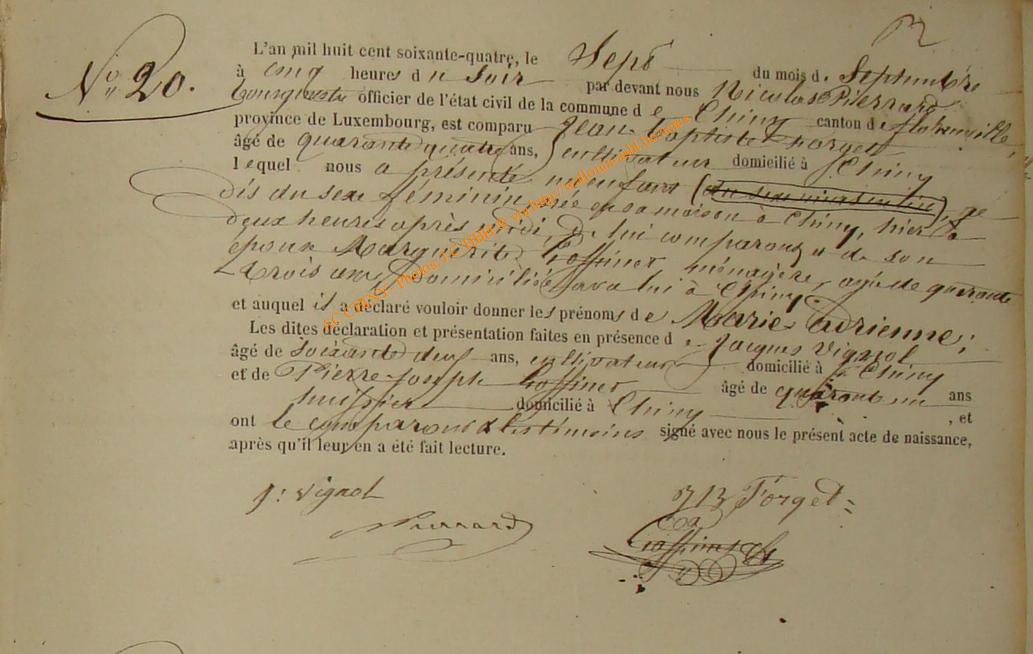 N° 20.
L'an mil huit cent soixante-quatre, le Sept du mois de Septembre
à cinq heures du soir par devant nous Nicolas Pierrard
bourgmestre officier de l'état civil de la commune de Chiny canton de florenville,
province de Luxembourg, est comparu Jean Baptiste Forget
âgé de quarante quatre ans, cultivateur domicilié à Chiny
lequel nous a présenté un enfant
du sexe féminin née en sa maison à Chiny, hier à
deux heures après midi, de lui comparant et de son
épouse Marguerite Goffinet ménagère, agée de quarante
trois ans domiciliée avec lui à Chiny
et auquel il a déclaré vouloir donner les prénoms de Marie Adrienne;
Les dites déclaration et présentation faites en présence de Jacques Vignol
âgé de soixante deux ans, cultivateur domicilié à Chiny
et de Pierre-Joseph Goffinet âgé de quarante un ans
huissier domicilié à Chiny, et
ont le comparant & les témoins signé avec nous le présent acte de naissance,
après qu'il leur en a été fait lecture.
J: Vignol
JB Forget
Pierrard
Goffinet